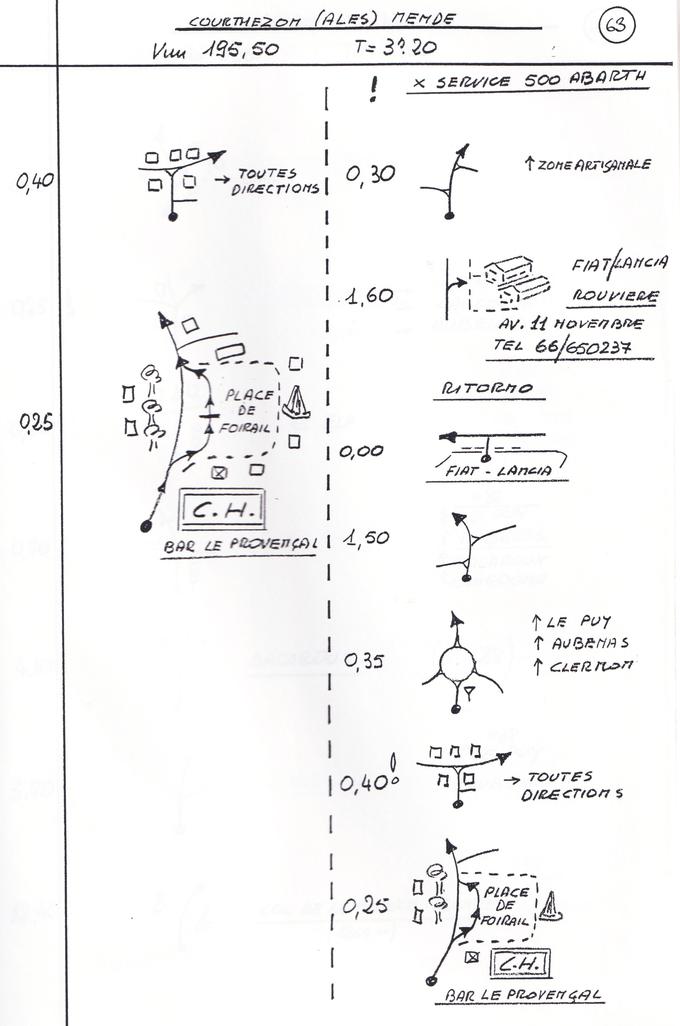 COURTHEZON (ALES) MENDE
63
Vm 195,50 T= 3º.20
0,40
→ TOUTES
DIRECTIONS
0,25
PLACE
DE
FOIRAIL
C.H.
BAR LE PROVENÇAL
! × SERVICE 500 ABARTH
0,30
↑ ZONE ARTISANALE
1,60
FIAT/LANCIA
ROUVIERE
AV. 11 NOVEMBRE
TEL 66/650237
RITORNO
0,00
FIAT - LANCIA
1,50
0,35
↑ LE PUY
↑ AUBENAS
↑ CLERMON
0,40
→ TOUTES
DIRECTIONS
0,25
PLACE
DE
FOIRAIL
C.H.
BAR LE PROVENÇAL